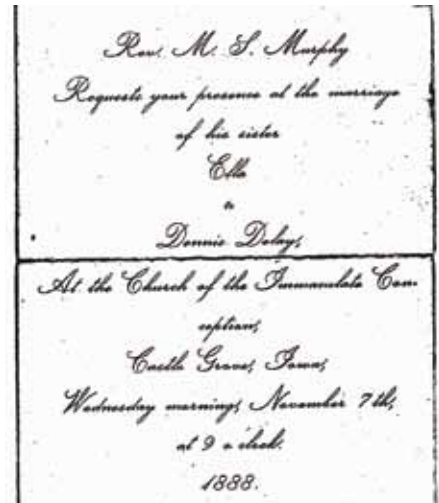 Rev. M. S. Murphy
Requests your presence at the marriage
of his sister
Ella
to
Dennis Delay,
At the Church of the Immaculate Con-
ception,
Castle Grove, Iowa,
Wednesday morning, November 7th,
at 9 o'clock.
1888.